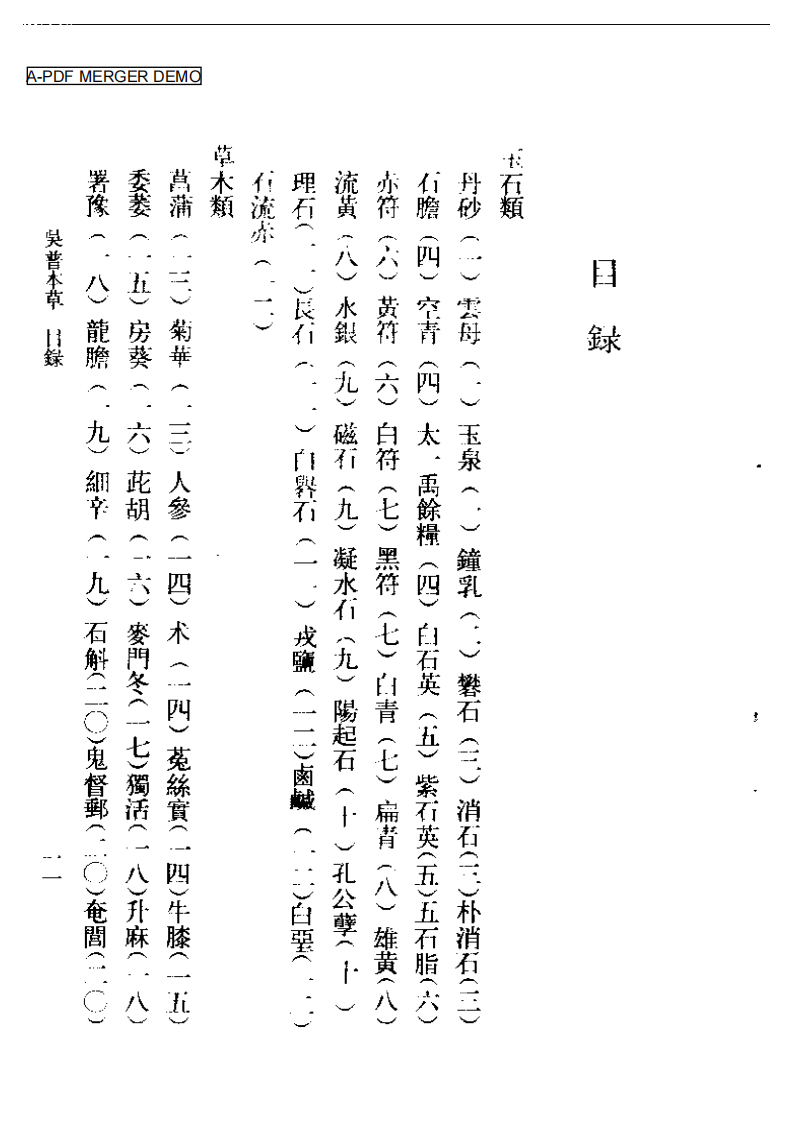 A-PDF MERGER DEMO
目錄
玉石類
丹砂(一)雲母(一)玉泉(一)鐘乳(二)礬石(三)消石(三)朴消石(三)
石膽(四)空青(四)太一禹餘糧(四)白石英(五)紫石英(五)五石脂(六)
赤符(六)黃符(六)白符(七)黑符(七)白青(七)扁青(八)雄黃(八)
流黃(八)水銀(九)磁石(九)凝水石(九)陽起石(十)孔公孽(十)
理石(一一)長石(一一)白礜石(一一)戎鹽(一二)鹵鹹(一二)白堊(一二)
石流赤(一二)
草木類
菖蒲(一三)菊華(一三)人參(一四)术(一四)菟絲實(一四)牛膝(一五)
委萎(一五)房葵(一六)茈胡(一六)麥門冬(一七)獨活(一八)升麻(一八)
署豫(一八)龍膽(一九)細辛(一九)石斛(二〇)鬼督郵(二〇)奄閭(二〇)
吳普本草 目錄